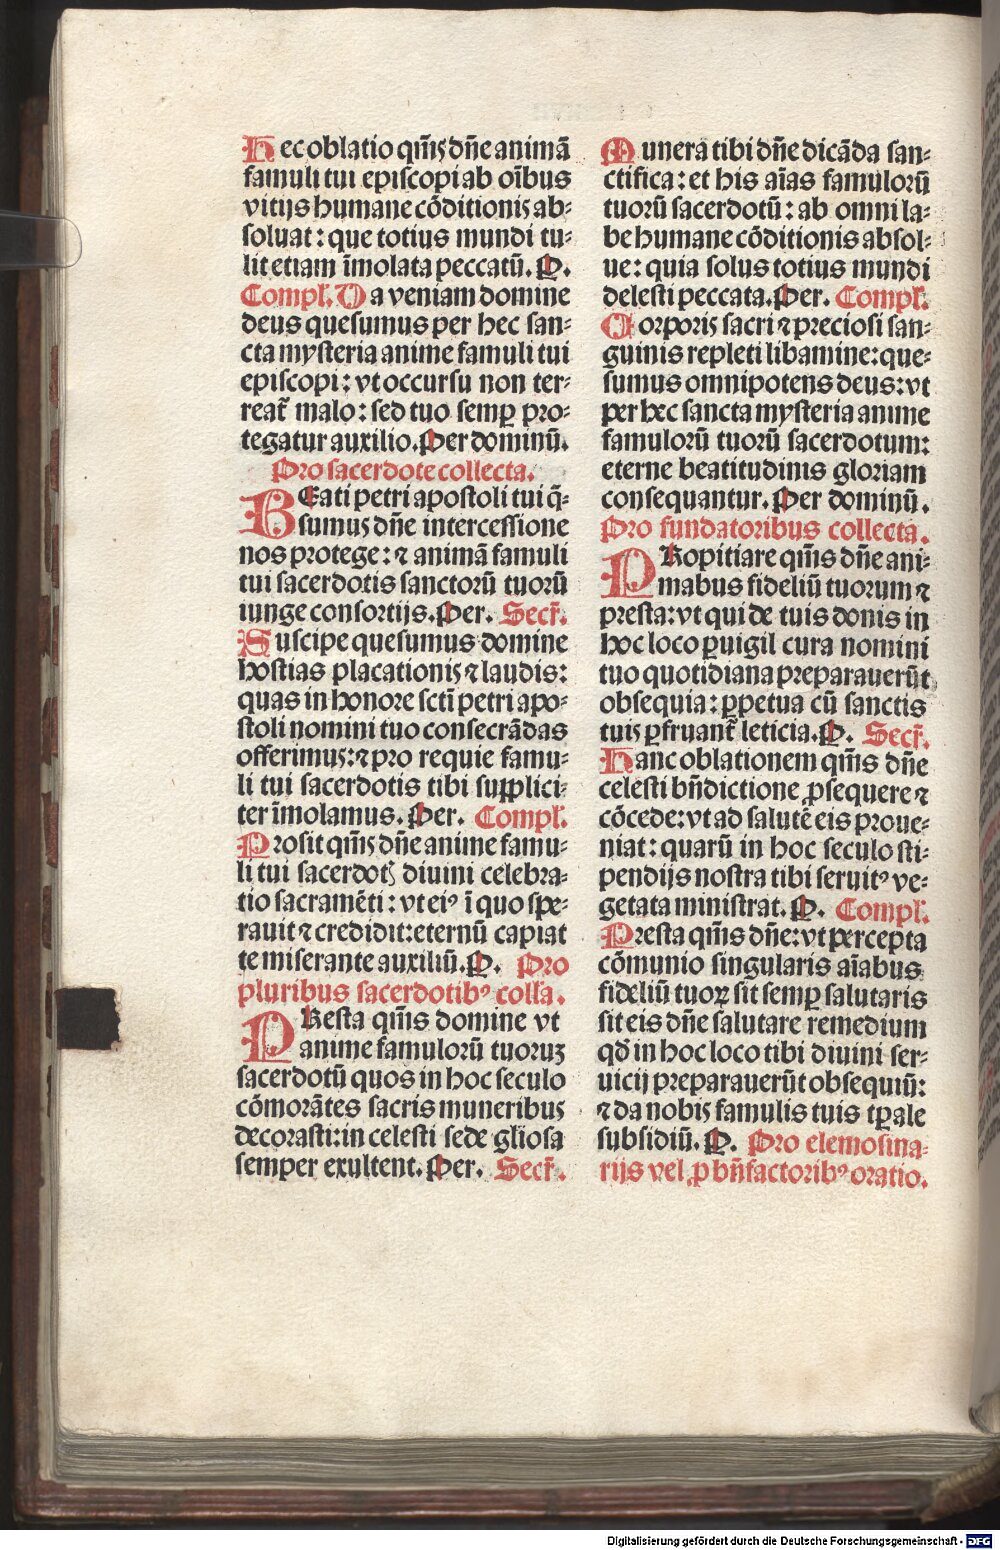 Hec oblatio qm̄s dn̄e animā
famuli tui episcopi ab oībus
vitijs humane cōditionis ab⸗
soluat: que totius mundi tu⸗
lit etiam īmolata peccatū. P.
Compl'. Da veniam domine
deus quesumus per hec san⸗
cta mysteria anime famuli tui
episcopi: vt occursu non ter⸗
reat̄ malo: sed tuo semꝑ pro⸗
tegatur auxilio. Per dominū.
Pro sacerdote collecta.
BEati petri apostoli tui q̄⸗
sumus dn̄e intercessione
nos protege: ⁊ animā famuli
tui sacerdotis sanctorū tuorū
iunge consortijs. Per. Secr̄.
Suscipe quesumus domine
hostias placationis ⁊ laudis:
quas in honore sctī petri apo⸗
stoli nomini tuo consecrādas
offerimus: ⁊ pro requie famu⸗
li tui sacerdotis tibi supplici⸗
ter īmolamus. Per. Compl'.
Prosit qm̄s dn̄e anime famu⸗
li tui sacerdotꝭ diuini celebra⸗
tio sacramēti: vt eiꝰ ī quo spe⸗
rauit ⁊ credidit: eternū capiat
te miserante auxiliū. P. Pro
pluribus sacerdotibꝰ coll'a.
PResta qm̄s domine vt
anime famulorū tuoruꝫ
sacerdotū quos in hoc seculo
cōmorātes sacris muneribus
decorasti: in celesti sede gl̄iosa
semper exultent. Per. Secr̄.
Munera tibi dn̄e dicāda san⸗
ctifica: et his aīas famulorū
tuorū sacerdotū: ab omni la⸗
be humane cōditionis absol⸗
ue: quia solus totius mundi
delesti peccata. Per. Compl'.
Corporis sacri ⁊ preciosi san⸗
guinis repleti libamine: que⸗
sumus omnipotens deus: vt
per hec sancta mysteria anime
famulorū tuorū sacerdotum:
eterne beatitudinis gloriam
consequantur. Per dominū.
Pro fundatoribus collecta.
PRopitiare qm̄s dn̄e ani⸗
mabus fideliū tuorum ⁊
presta: vt qui de tuis donis in
hoc loco ꝑuigil cura nomini
tuo quotidiana preparauerūt
obsequia: ꝑpetua cū sanctis
tuis ꝑfruant̄ leticia. P. Secr̄.
Hanc oblationem qm̄s dn̄e
celesti bn̄dictione ꝓsequere ⁊
cōcede: vt ad salutē eis proue⸗
niat: quarū in hoc seculo sti⸗
pendijs nostra tibi seruitꝰ ve⸗
getata ministrat. P. Compl'.
Presta qm̄s dn̄e: vt percepta
cōmunio singularis aīabus
fideliū tuoꝝ sit semꝑ salutaris
sit eis dn̄e salutare remedium
qd̄ in hoc loco tibi diuini ser⸗
uicij preparauerūt obsequiū:
⁊ da nobis famulis tuis tꝑale
subsidiū. P. Pro elemosina⸗
rijs vel ꝓ bn̄factoribꝰ oratio.
Digitalisierung gefördert durch die Deutsche Forschungsgemeinschaft - DFG